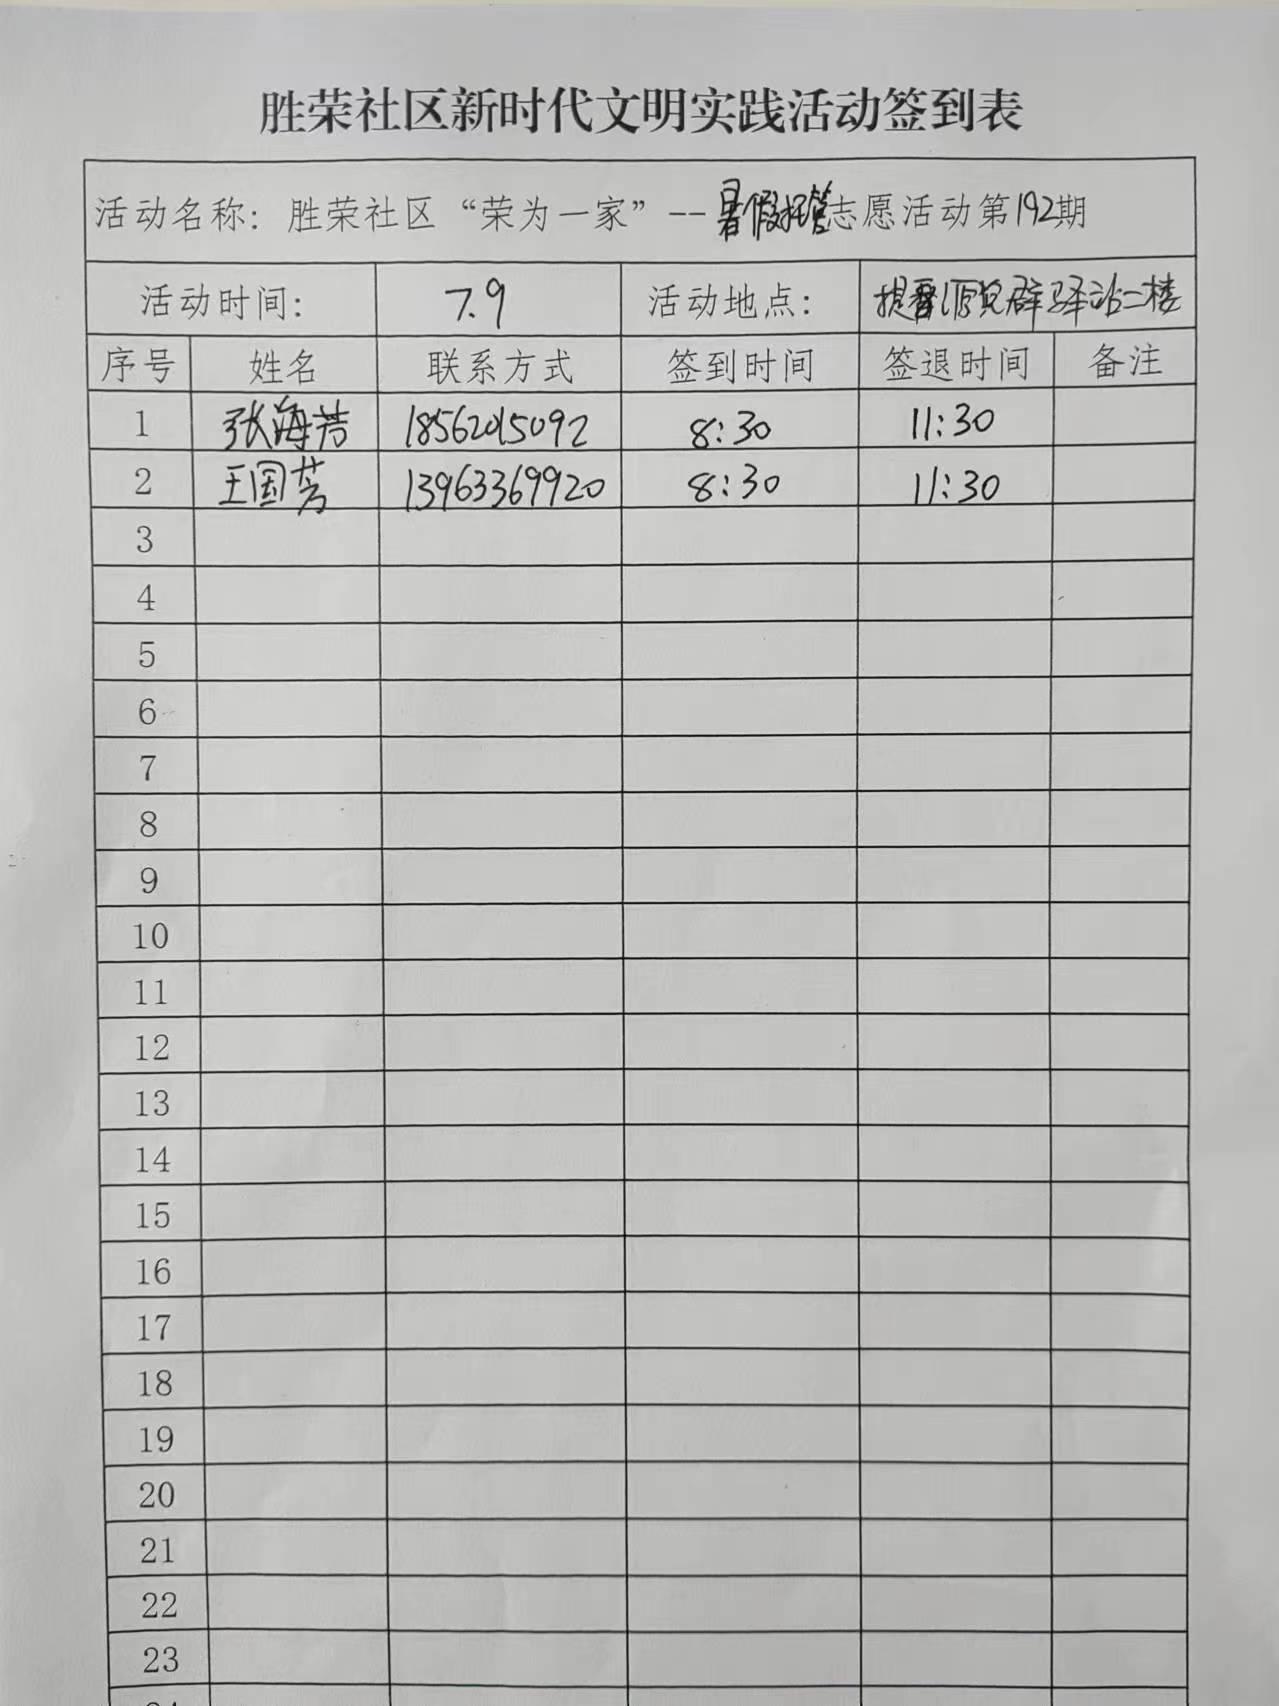 胜荣社区新时代文明实践活动签到表
活动名称：胜荣社区“荣为一家”--暑假托管志愿活动第192期
活动时间： 7.9 活动地点： 党群驿站二楼
序号 姓名 联系方式 签到时间 签退时间 备注
1 张海芸 18562015092 8:30 11:30
2 王国芳 13963369920 8:30 11:30
3
4
5
6
7
8
9
10
11
12
13
14
15
16
17
18
19
20
21
22
23